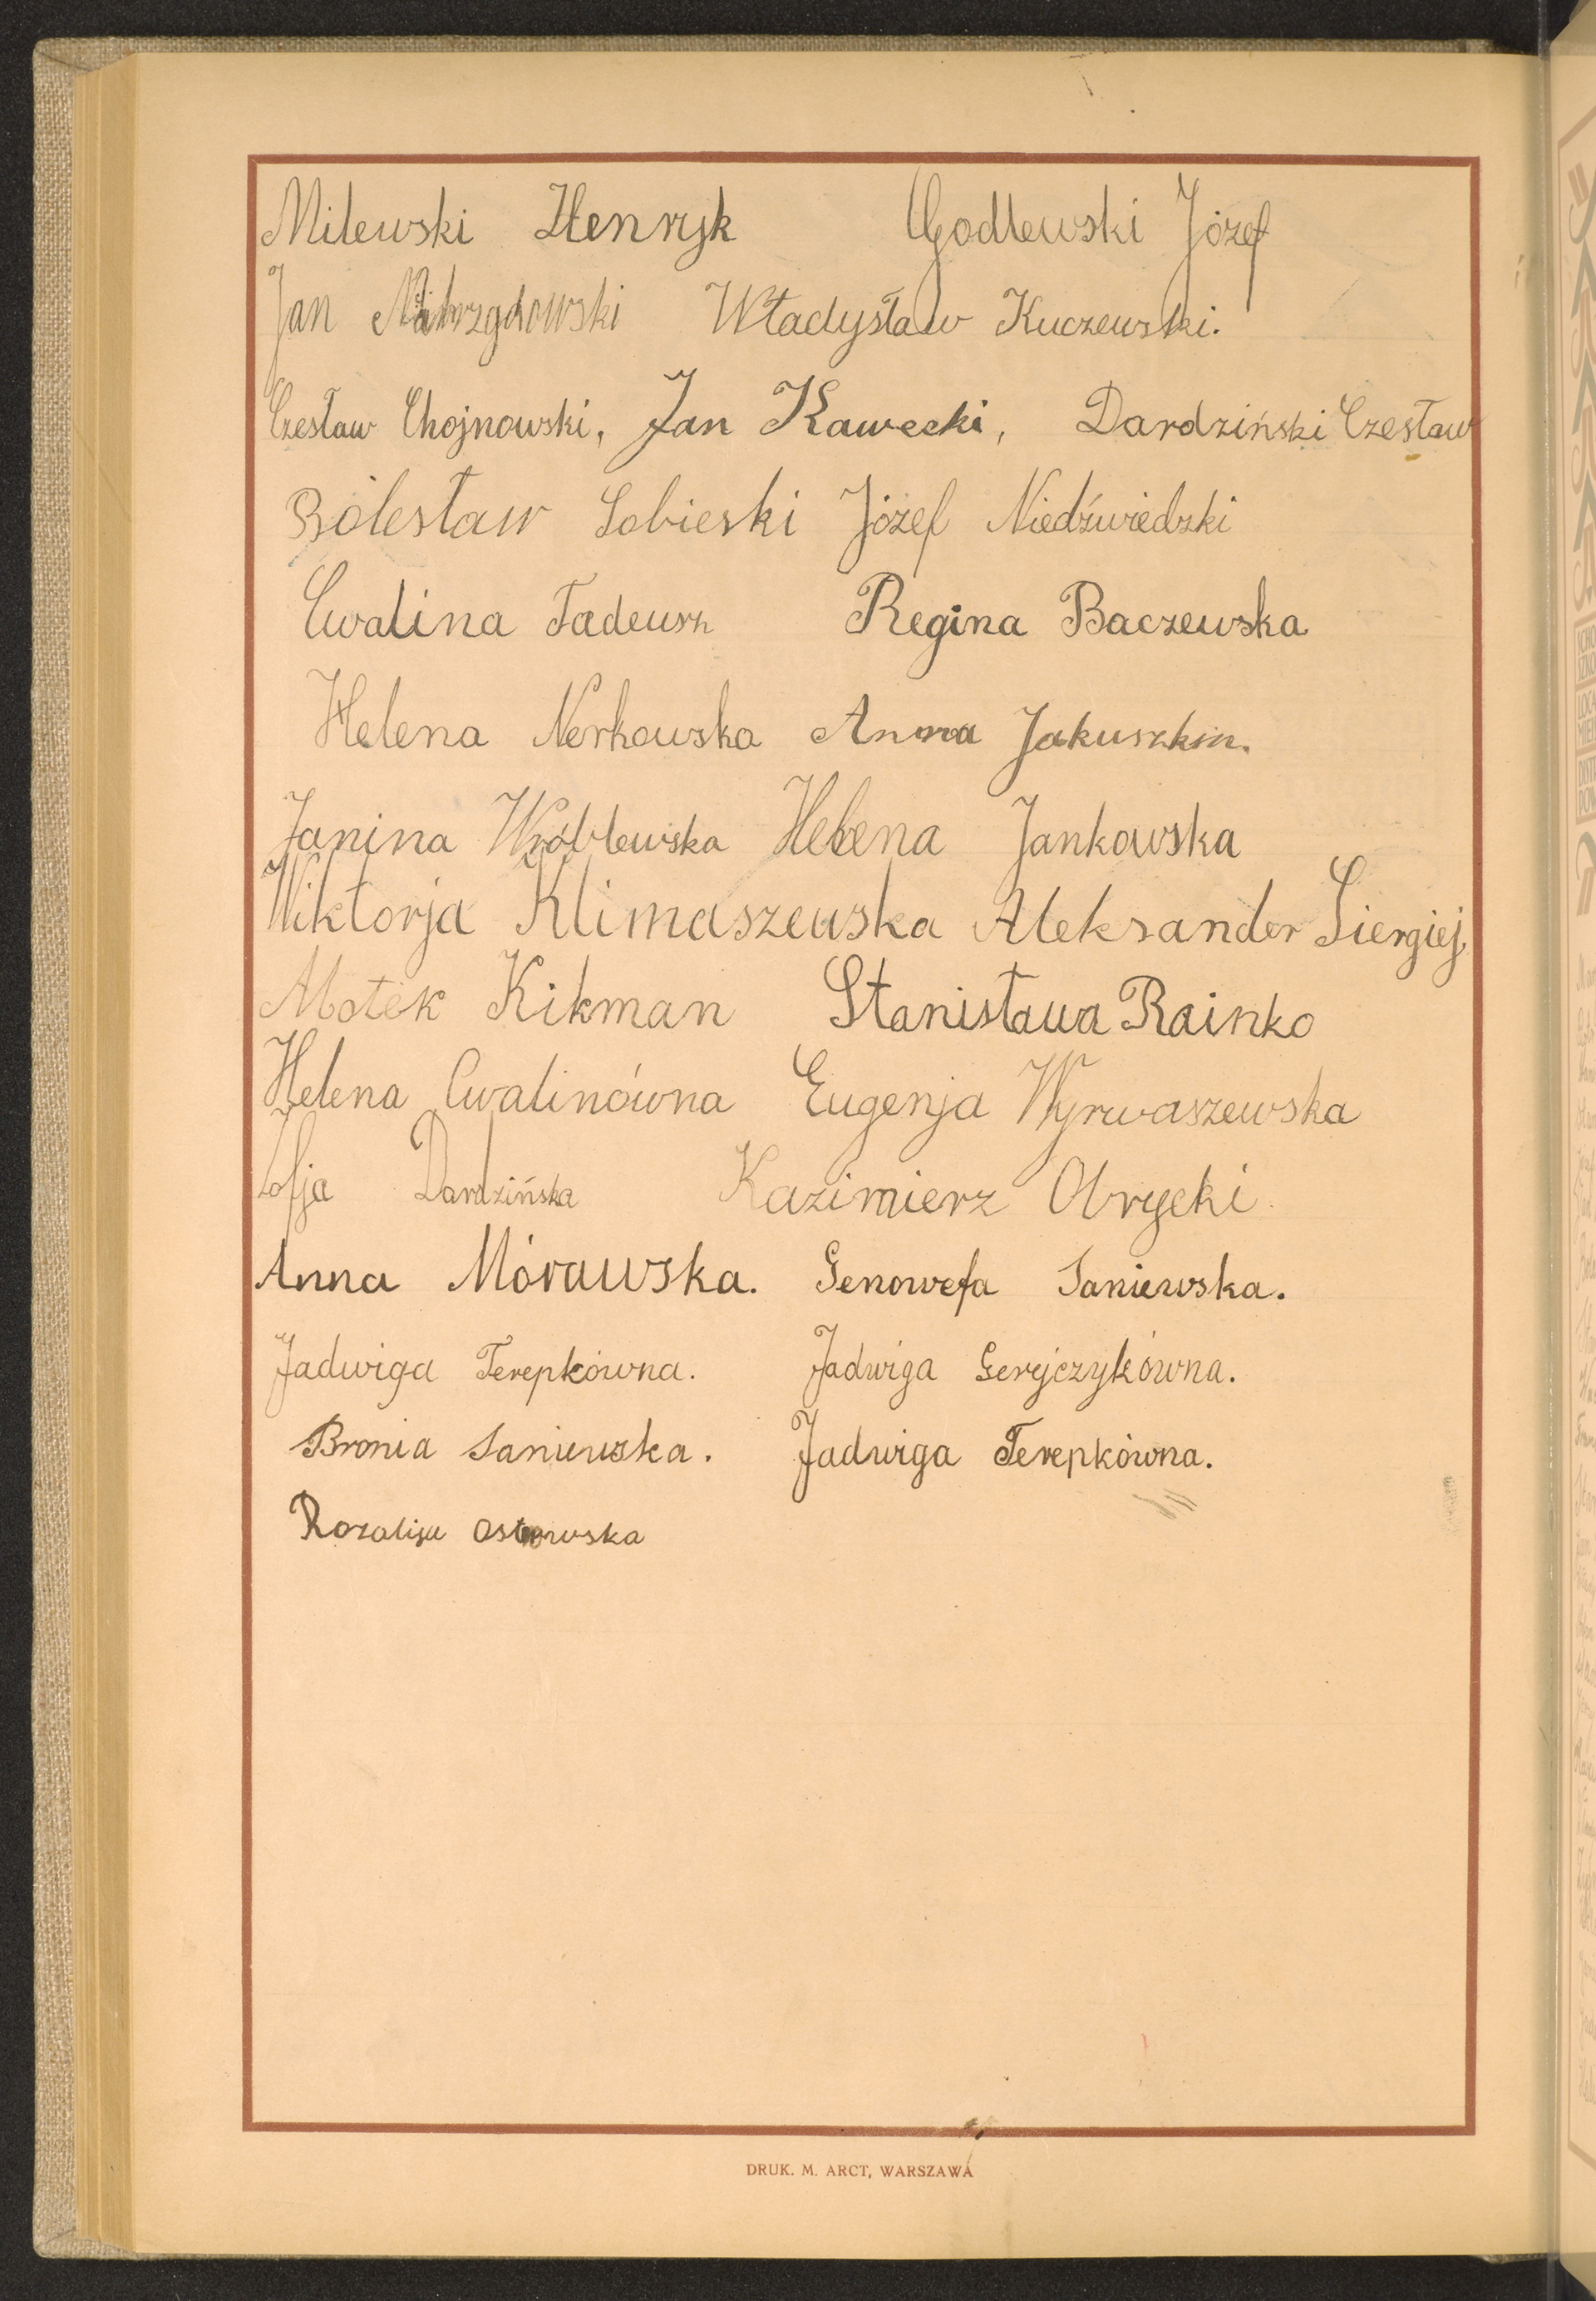 Milewski Henryk Godlewski Józef
Jan Władysław Kuczewski.
Czesław Chojnowski, Jan Kawecki, Dardziński Czesław
Bolesław Sobieski Józef Niedźwiedzki
Cwalina Tadeusz Regina Baczewska
Helena Nerkowska Anna Jakuszkin.
Janina Wróblewska Helena Jankowska
Wiktorja Klimaszewska Aleksander Siergiej
Motek Kikman Stanisława Rainko
Helena Cwalinówna Eugenja Wyrwaszewska
Zofja Dardzińska Kazimierz Obrycki
Anna Morawska. Genowefa Saniewska.
Jadwiga Terepkówna. Jadwiga Geryjczykówna.
Bronia Saniewska. Jadwiga Terepkówna.
Rozalija Ostrowska
DRUK. M. ARCT, WARSZAWA